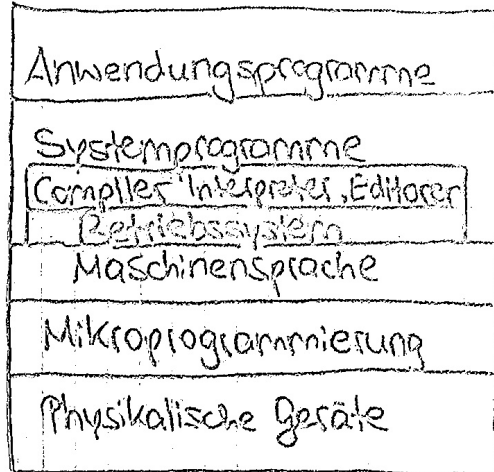 Anwendungsprogramme
Systemprogramme
Compiler Interpreter, Editoren
Betriebssystem
Maschinensprache
Mikroprogrammierung
Physikalische Geräte